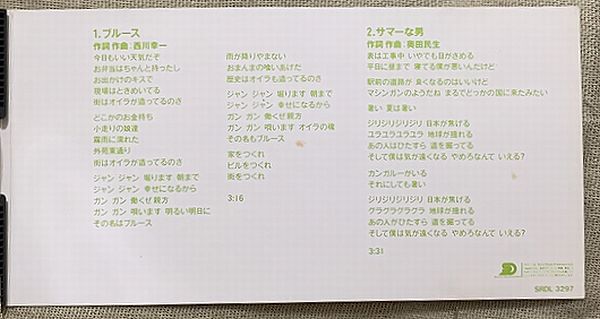 1.ブルース
作詞 作曲:西川幸一
今日もいい天気だぞ
お弁当はちゃんと持ったし
お出かけのキスで
現場はときめいてる
街はオイラが造ってるのさ
どこかのお金持ち
小走りの娘達
霧雨に濡れた
外苑東通り
街はオイラが造ってるのさ
ジャン ジャン 堀ります 朝まで
ジャン ジャン 幸せになるから
ガン ガン 働くぜ親方
ガン ガン 唄います 明るい明日に
その名はブルース
雨が降りやまない
おまんまの喰いあげた
歴史はオイラも造ってるのさ
ジャン ジャン 堀ります 朝まで
ジャン ジャン 幸せになるから
ガン ガン 働くぜ親方
ガン ガン 唄います オイラの魂
その名もブルース
家をつくれ
ビルをつくれ
街をつくれ
3:16
2.サマーな男
作詞 作曲:奥田民生
表は工事中 いやでも目がさめる
平日に昼まで 寝てる僕が悪いんだけど
駅前の道路が 良くなるのはいいけど
マシンガンのようだね まるでどっかの国に来たみたい
暑い 夏は暑い
ジリジリジリジリ 日本が焦げる
ユラユラユラユラ 地球が揺れる
あの人がひたすら 道を掘ってる
そして僕は気が遠くなる やめろなんて いえる?
カンガルーがいる
それにしても暑い
ジリジリジリジリ 日本が焦げる
グラグラグラグラ 地球が揺れる
あの人がひたすら 道を掘ってる
そして僕は気が遠くなる やめろなんて いえる?
3:31
SRDL 3297